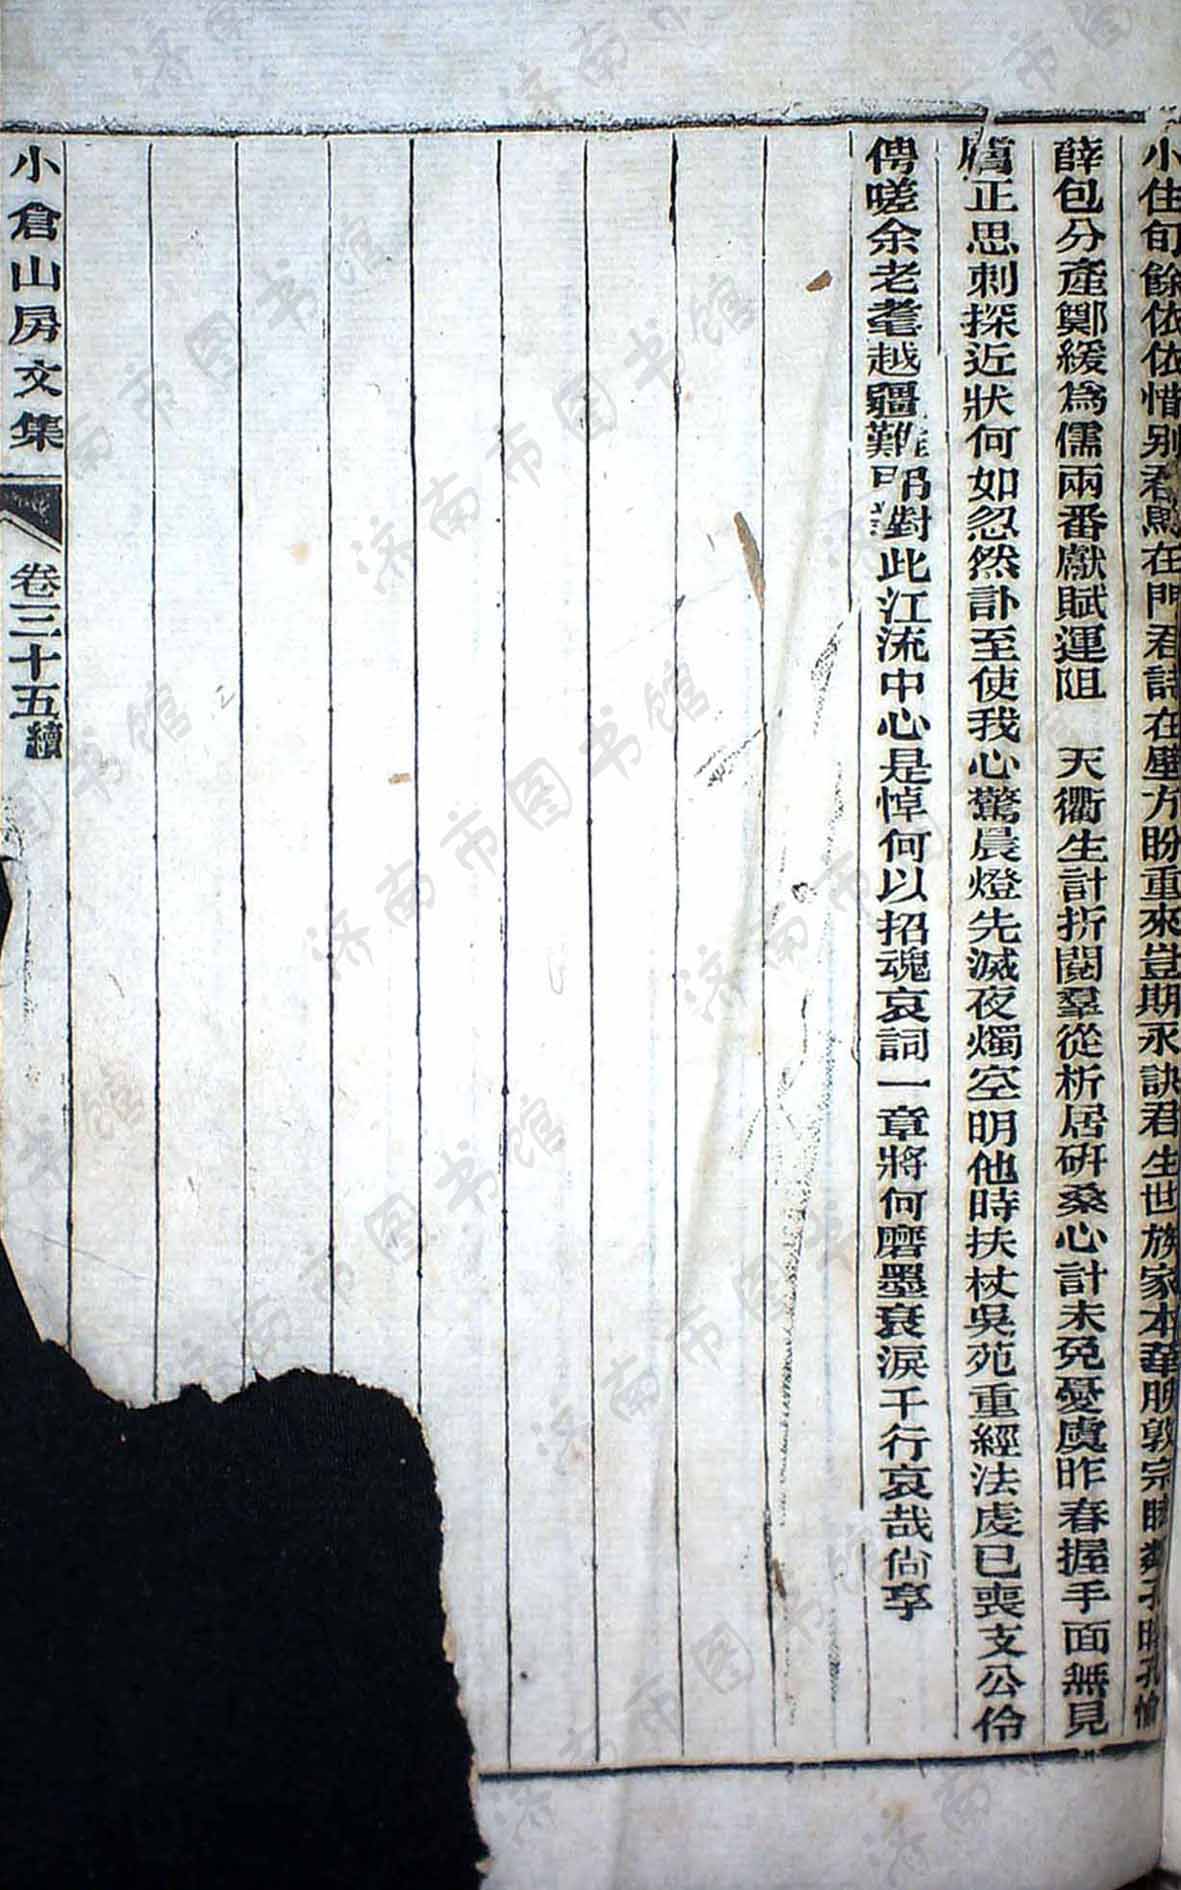 小住旬餘依依惜别君馬在門君詩在壁方盼重來豈期永訣君生世族家本華朊敦宗睦
薛包分產鄭緩爲儒兩番獻賦運阻　天衢生計折閱羣從析居研桑心計未免憂虞昨春握手面無見
膚正思刺探近狀何如忽然訃至使我心驚晨燈先滅夜燭空明他時扶杖吳苑重經法虔已喪支公伶
傳嗟余老耄越疆難對此江流中心是悼何以招魂哀詞一章將何磨墨衰淚千行哀哉尙享
小倉山房文集
卷三十五續
济南市图书馆